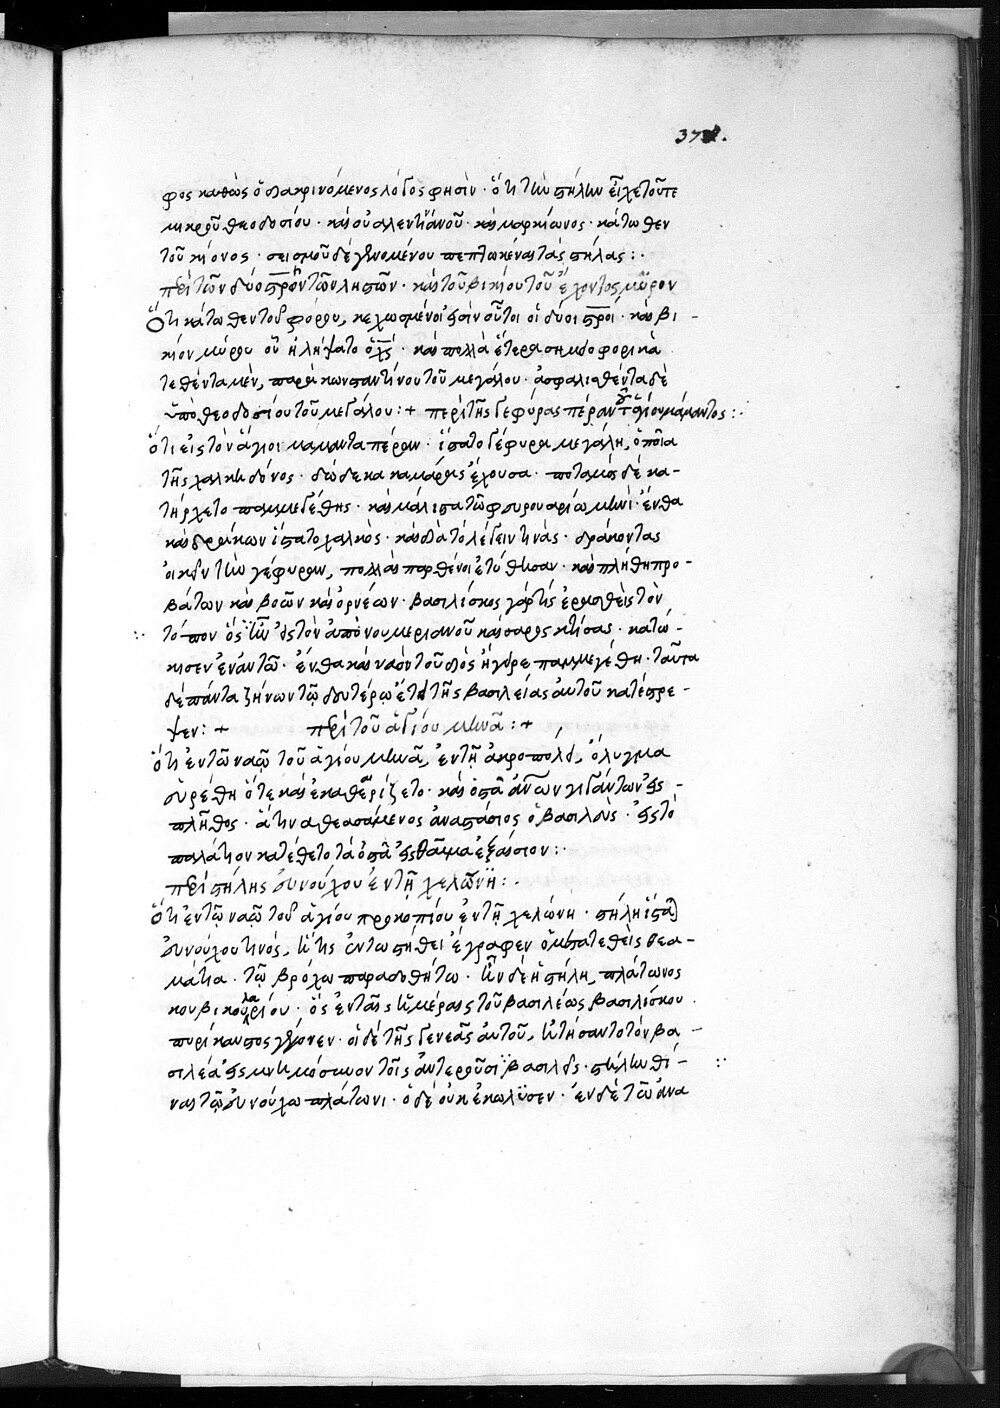 φος καθὼς ὁ διακρινόμενος λόγος φησὶν · ὅτι τὴν στήλην εἶχε τοῦτε
μικροῦ θεοδοσίου · καὶ οὐαλεντιανοῦ · καὶ μαρκίωνος · κάτωθεν
τοῦ κίονος · σεισμοῦ δὲ γενομένου πεπτωκέναι τὰς στήλας :·
περὶ τῶν δύο στρῶν τῶν ληστῶν · καὶ τοῦ βικίου τοῦ ἔχοντος μῦρον
Ὅτι κάτωθεν τοῦ φόρου, κεχωσμένοι εἰσὶν οὗτοι οἱ δύοι στροι · καὶ βι -
κίον μύρου οὗ ἠλήψατο ὁ χς · καὶ πολλὰ ἕτερα σημειοφορικὰ
τεθέντα μὲν, παρὰ κωνσταντίνου τοῦ μεγάλου · ἀσφαλισθέντα δὲ
ὑπὸ θεοδοσίου τοῦ μεγάλου :+ περὶ τῆς γεφύρας πέραν τοῦ ἁγίου μάμαντος :·
ὅτι εἰς τὸν ἅγιον μάμαντα πέραν · ἵστατο γέφυρα μεγάλη, ὁποῖα
τῆς χαλκηδόνος · δώδεκα καμάρας ἔχουσα · ποταμὸς δὲ κα-
τήρχετο παμμεγέθης · καὶ μάλιστα τῷ φευρουαρίω μηνὶ · ἔνθα
καὶ δράκων ἵστατο χαλκὸς · καὶ διὰ τὸ λέγειν τινὰς · δράκοντας
οἰκεῖν τὴν γέφυραν, πολλαὶ παρθένοι ἐτύθησαν · καὶ πλήθη προ-
βάτων καὶ βοῶν καὶ ὀρνέων · βασιλίσκος γάρ τις ἐρασθεὶς τὸν
τόπον ὃς ἦν εἷς τὸν ἀπὸ νουμεριανοῦ καίσαρος κτίσας · κατώ-
κησεν ἐν αὐτῶ · ἔνθα καὶ ναὸν τοῦ διὸς ἤγειρε παμμεγέθη · ταῦτα
δὲ πάντα ζήνων τῷ δευτέρω ἔτει τῆς βασιλείας αὐτοῦ κατέστρε-
ψεν :+ περὶ τοῦ ἁγίου μηνᾶ :+
ὅτι ἐν τῶ ναῷ τοῦ ἁγίου μηνᾶ, ἐν τῇ ἀκροπόλει, ὄλυγμα
εὑρέθη ὅτε καὶ ἐκαθαρίζετο · καὶ ὀστᾶ ἀνων γιγάντων εἰς -
πλῆθος · ἅτινα θεασάμενος ἀναστάσιος ὁ βασιλεὺς · εἰς τὸ
παλάτιον κατέθετο τὰ ὀστᾶ εἰς θαῦμα ἐξαίσιον :·
περὶ στήλης εὐνούχου ἐν τῇ χελώνῃ :·
Ὅτι ἐν τῷ ναῷ τοῦ ἁγίου προκοπίου ἐν τῇ χελώνη · στήλη ἵστα
εὐνούχου τινός, ἥτις ἐν τω στήθει ἔγραφεν ὁ μετατεθεὶς θεα-
μάτια · τῷ βρόχω παραδοθήτω · ἦν δὲ ἡ στήλη, πλάτωνος
κουβικουλαρίου · ὃς ἐν ταῖς ἡμέραις τοῦ βασιλέως βασιλίσκου ·
πυρίκαυστος γέγονεν · οἱ δὲ τῆς γενεᾶς αὐτοῦ, ἠτήσαντο τὸν βα -
σιλέα εἰς μνημόσυνον τοῖς ἀντεροῦσι βασιλεῖ · στήλην θεῖ-
ναι τῷ εὐνούχω πλάτωνι · ὁ δὲ οὐκ ἐκωλϋσεν · ἐν δὲ τῶ ἀνα